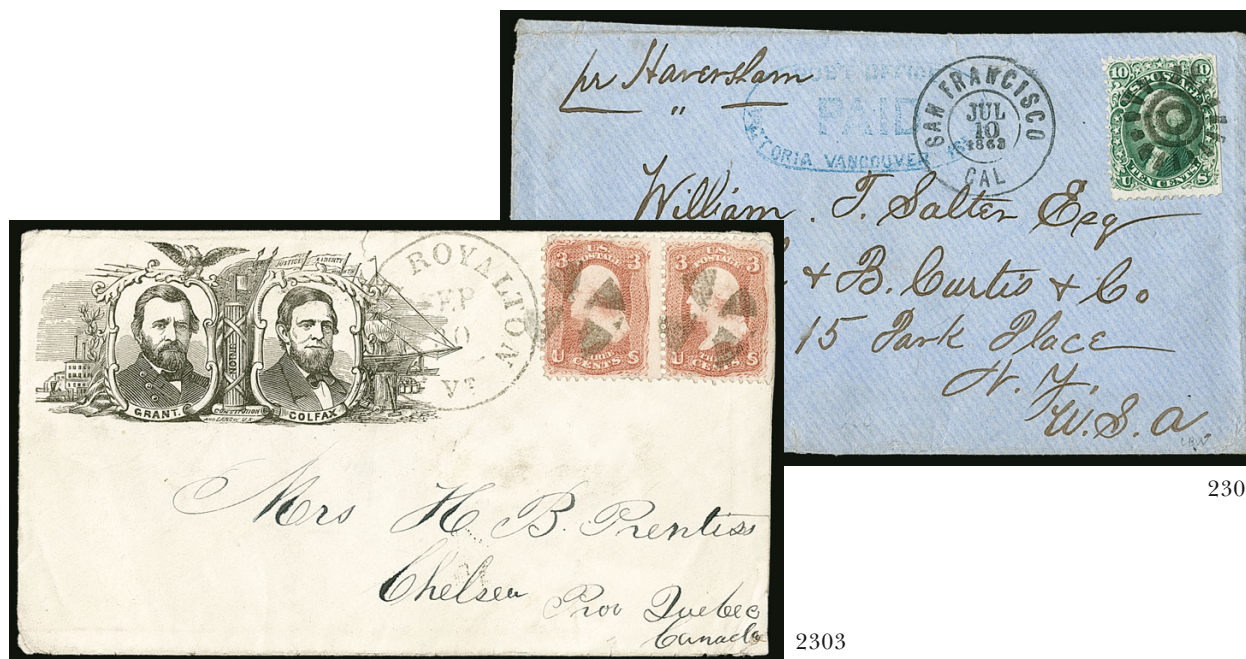 pr Haversham
"
POST OFFICE
PAID
VICTORIA VANCOUVER
SAN FRANCISCO
JUL
10
1863
CAL
10 10
U.S. POSTAGE
U TEN CENTS S
William. T. Salter Esq
& B. Curtis & Co
15 Park Place
N. Y.
U.S.a
230
JUSTICE LIBERTY
UNION
GRANT.
CONSTITUTION
COLFAX
ROYALTON
SEP
VT
U.S.
POSTAGE
3 3
U THREE S
CENTS
U.S.
POSTAGE
3 3
U THREE S
CENTS
Mrs H. B. Prentiss
Chelsea Prov Quebec
Canada
2303